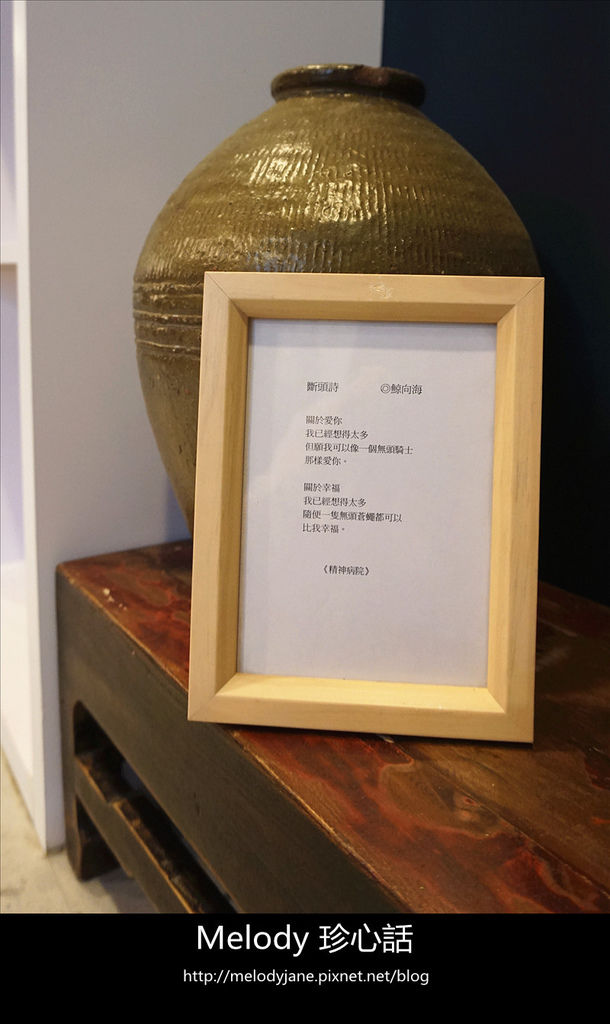 斷頭詩 ◎鯨向海
關於愛你
我已經想得太多
但願我可以像一個無頭騎士
那樣愛你。
關於幸福
我已經想得太多
隨便一隻無頭蒼蠅都可以
比我幸福。
《精神病院》
Melody 珍心話
http://melodyjane.pixnet.net/blog